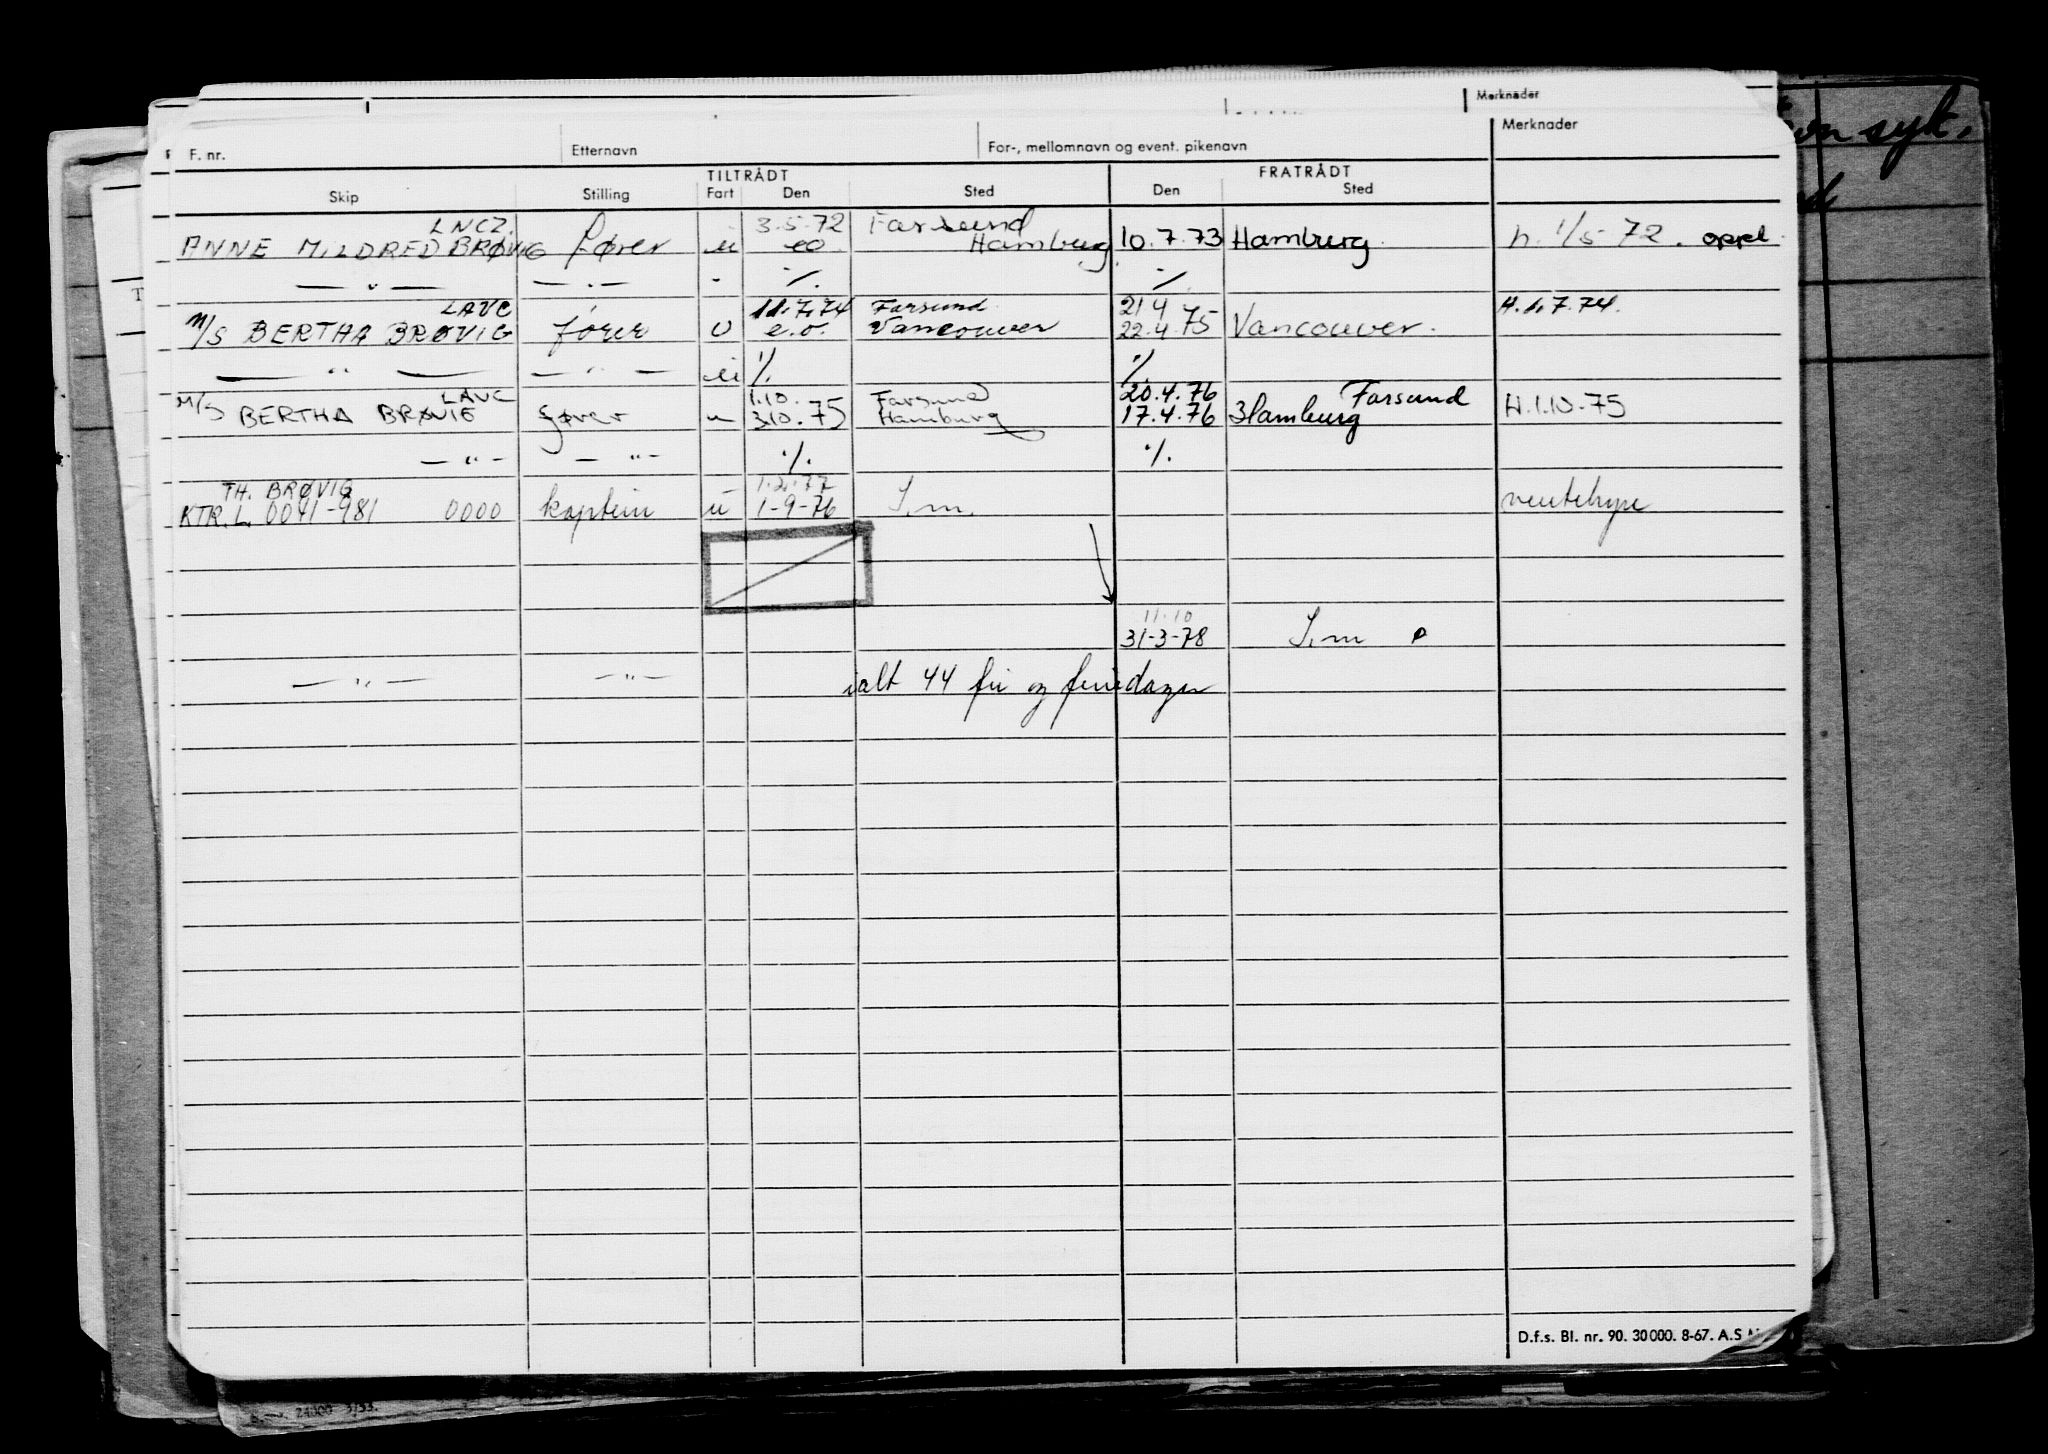 Merknader
F. nr. Etternavn For-, mellomnavn og event. pikenavn Merknader
TILTRÅDT FRATRÅDT
Skip Stilling Fart Den Sted Den Sted
LNCZ. 3.5.72 Farsund
ANNE MILDRED BRØVIG fører u eo Hamburg 10.7.73 Hamburg. h. 1/5 72. oppl.
— " — — " — - ./. ./.
LAVC 11.7.74 Farsund 21 4 H. 1.7.74.
M/S BERTHA BRØVIG fører U e.o. Vancouver 22.4.75 Vancouver.
— " — — " — u ./. ./.
LAVC 1.10. Farsund 20.4.76 Farsund
M/S BERTHA BRØVIG fører u 3.10.75 Hamburg 17.4.76 Hamburg H.1.10.75
— " — — " — ./. ./.
TH. BRØVIG 1.2.77
KTR.L. 0041-981 0000 kaptein u 1-9-76 S.m. ventehyre
11.10
31-3-78 S.m
— " — — " — ialt 44 fri og feriedager
D.f.s. Bl. nr. 90. 30000. 8-67. A.S
syk.
24000